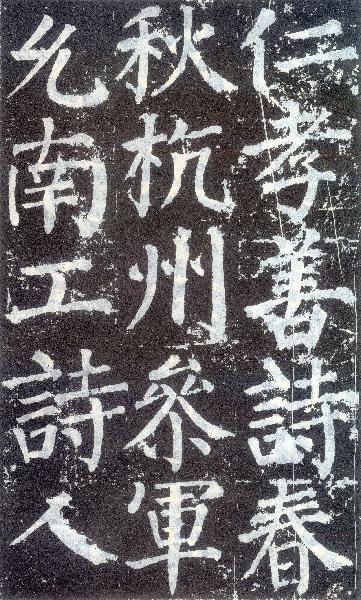 仁孝善詩春
秋杭州參軍
允南工詩人